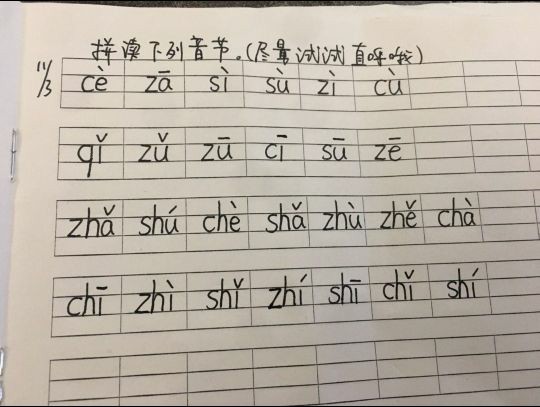 拼读下列音节。(尽量试试直呼哦)
11/3
cè zā sì sù zì cù
qǐ zǔ zū cī sū zē
zhǎ shú chè shǎ zhù zhě chà
chī zhì shǐ zhí shī chǐ shí